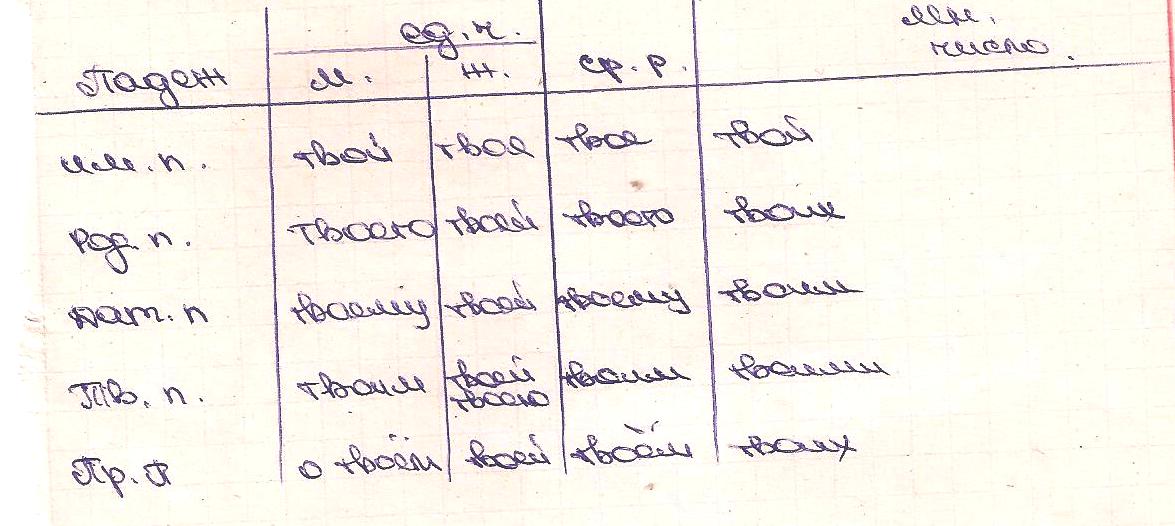 ед.ч. мн.
Падеж м. ж. ср.р. число.
им.п. твой твоя твое твой
Род.п. твоего твоей твоего твоих
Дат.п твоему твоей твоему твоим
Тв.п. твоим твоей твоим твоими
твоею
Пр.п о твоём твоей твоём твоих